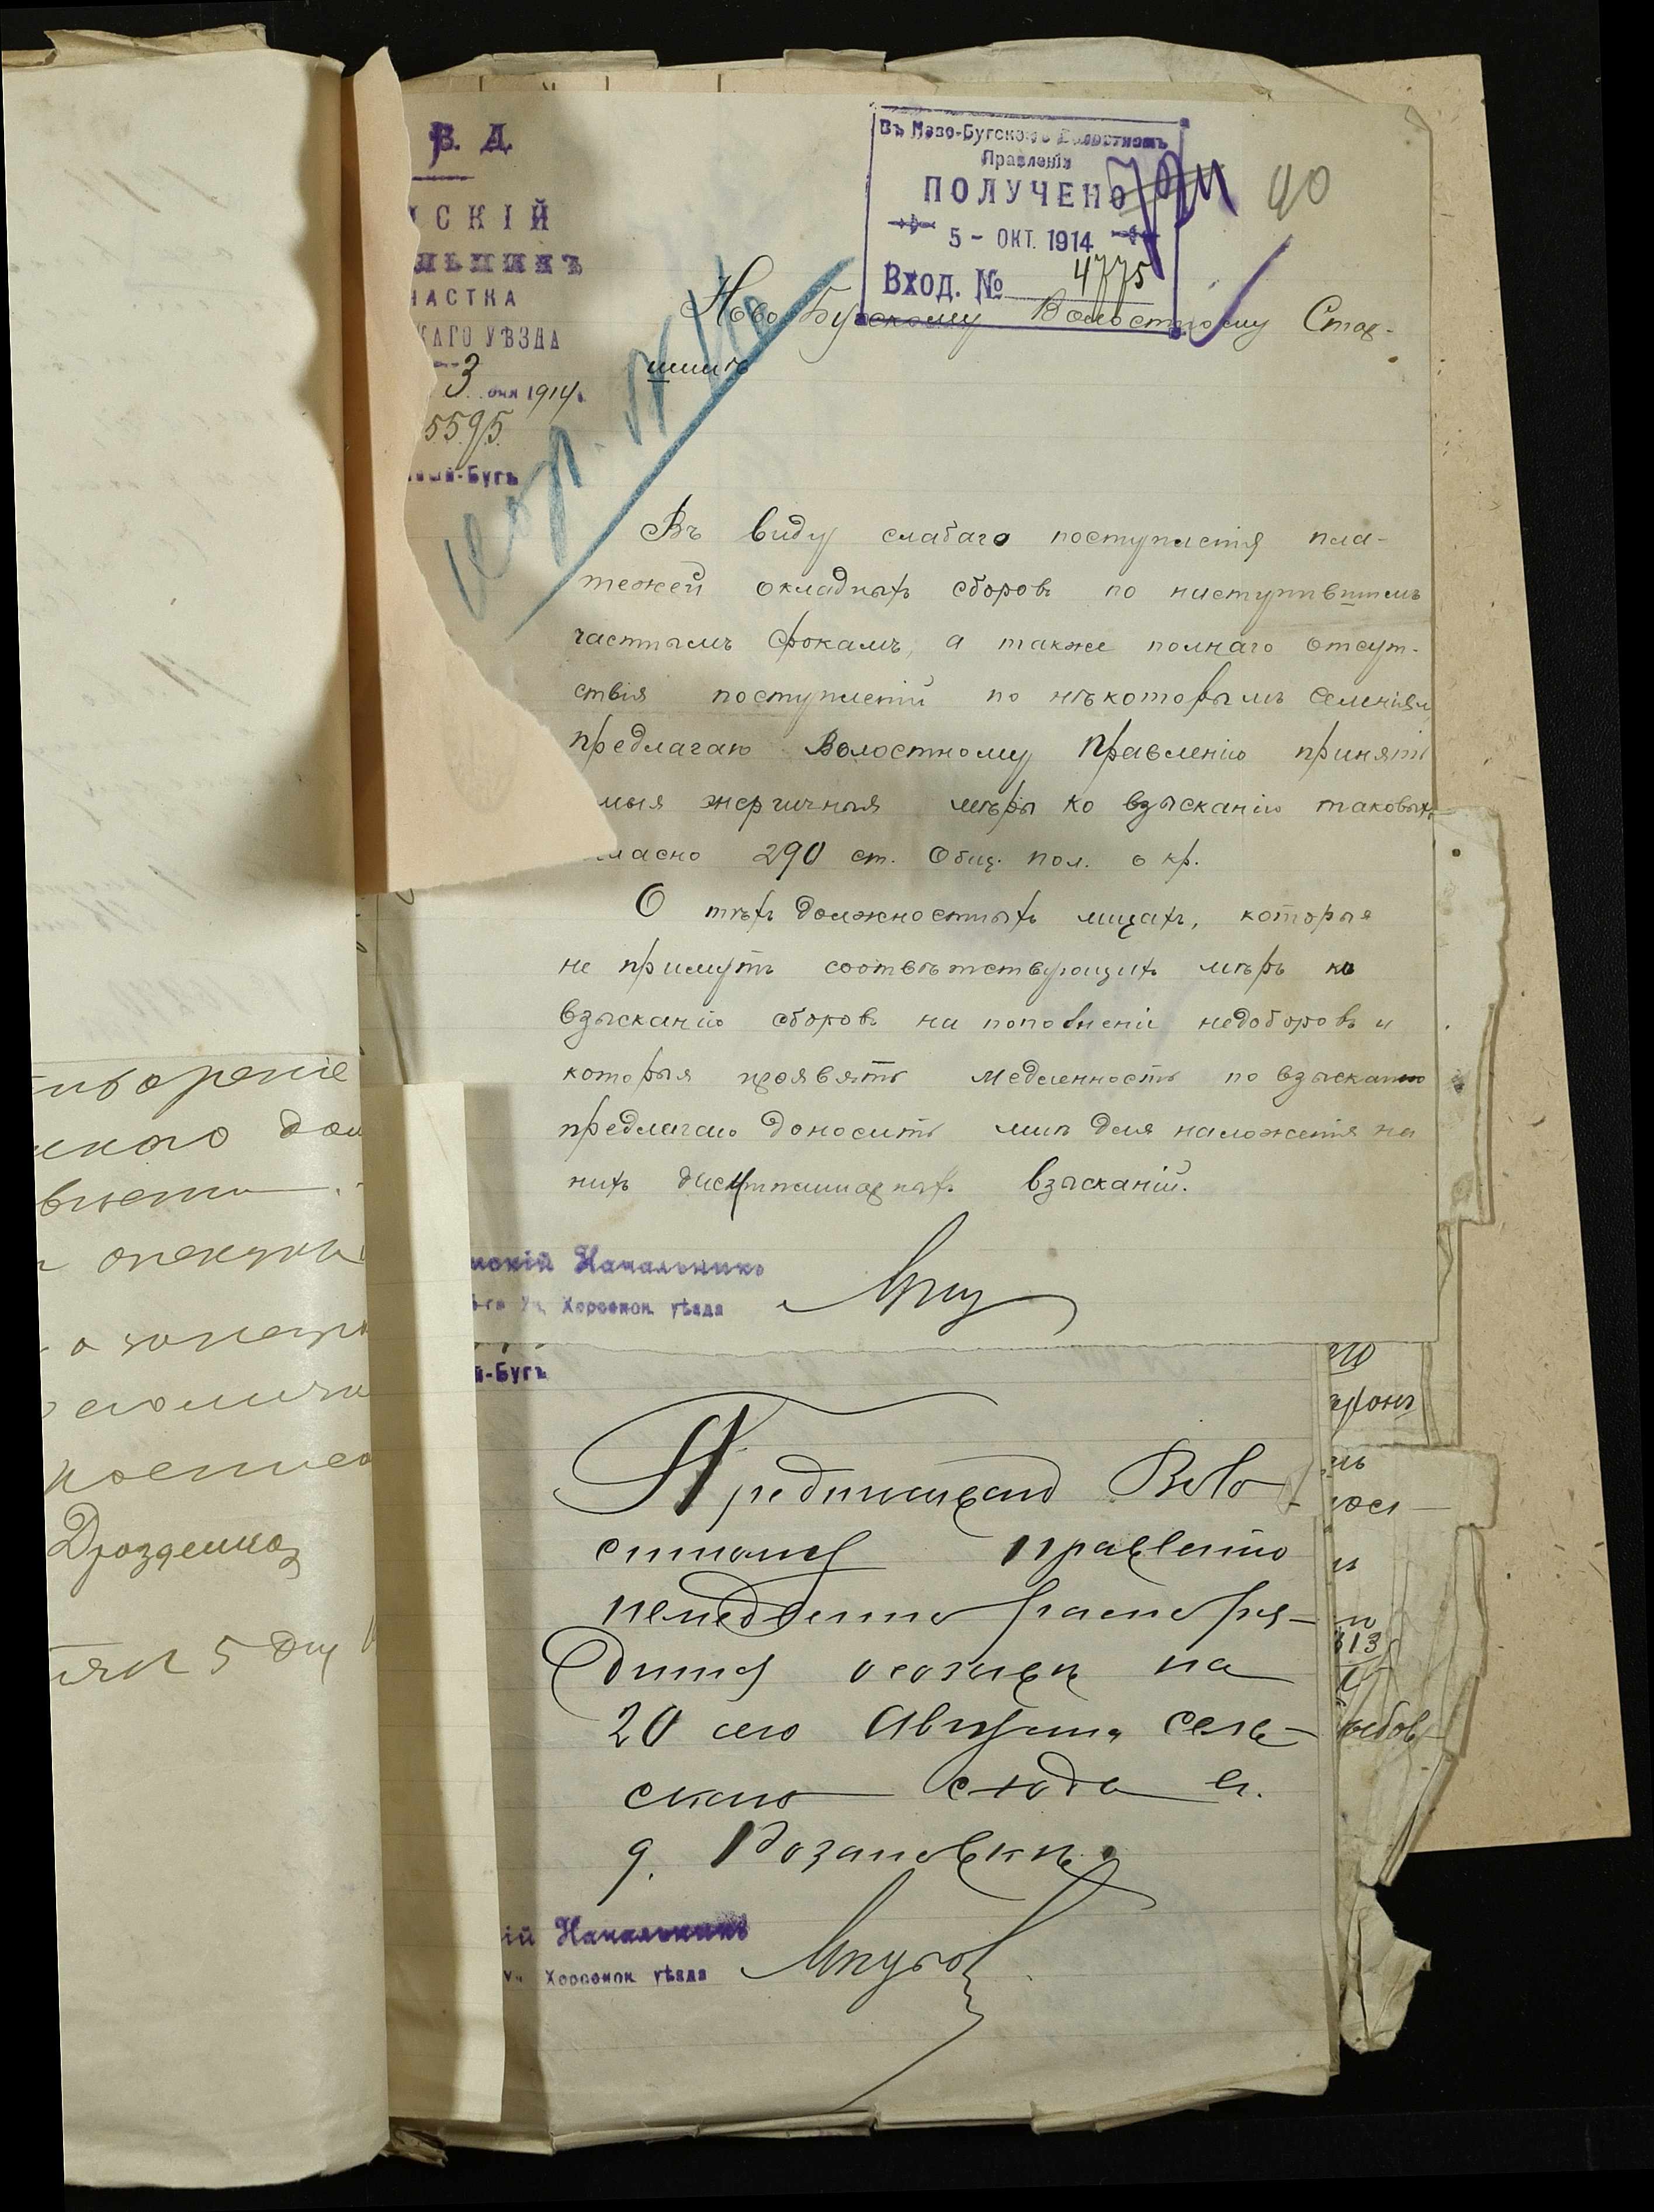 В. Д.
СКІЙ
ЛЬНИКЪ
ЧАСТКА
КАГО УѢЗДА
3 дня 1914 г.
5595
вый-Бугъ
Въ Ново-Бугскомъ Волостномъ
Правленіи
ПОЛУЧЕНО
5 - ОКТ. 1914
Вход. № 4775
40
Ново Бугскому Волостному Стар-
шинѣ
Въ виду слабаго поступленія пла-
тежей окладныхъ сборовъ по наступившимъ
частнымъ срокамъ, а также полнаго отсут-
ствія поступленій по нѣкоторымъ селеніям
предлагаю Волостному Правленію принять
мыя энергичныя мѣры ко взысканію таковыхъ
гласно 290 ст. Общ. пол. о кр.
О тѣхъ должностныхъ лицахъ, которыя
не примутъ соотвѣтствующихъ мѣръ ко
взысканію сборовъ на пополненіе недоборовъ и
которыя проявятъ медленность по взысканію
предлагаю доносить мнѣ для наложенія на
нихъ дисциплинарныхъ взысканій.
мскій Начальникъ
5-го Уч. Херсонск. уѣзда
й-Бугъ
Предписываю Воло-
стному правленію
немедленно распоря-
дится созывомъ на
20 сего Августа сель-
скаго схода в.
д. Розановкѣ.
ій Начальникъ
Уч. Херсонск. уѣзда
творение
опекуны
Дрозденко
5 дну
313